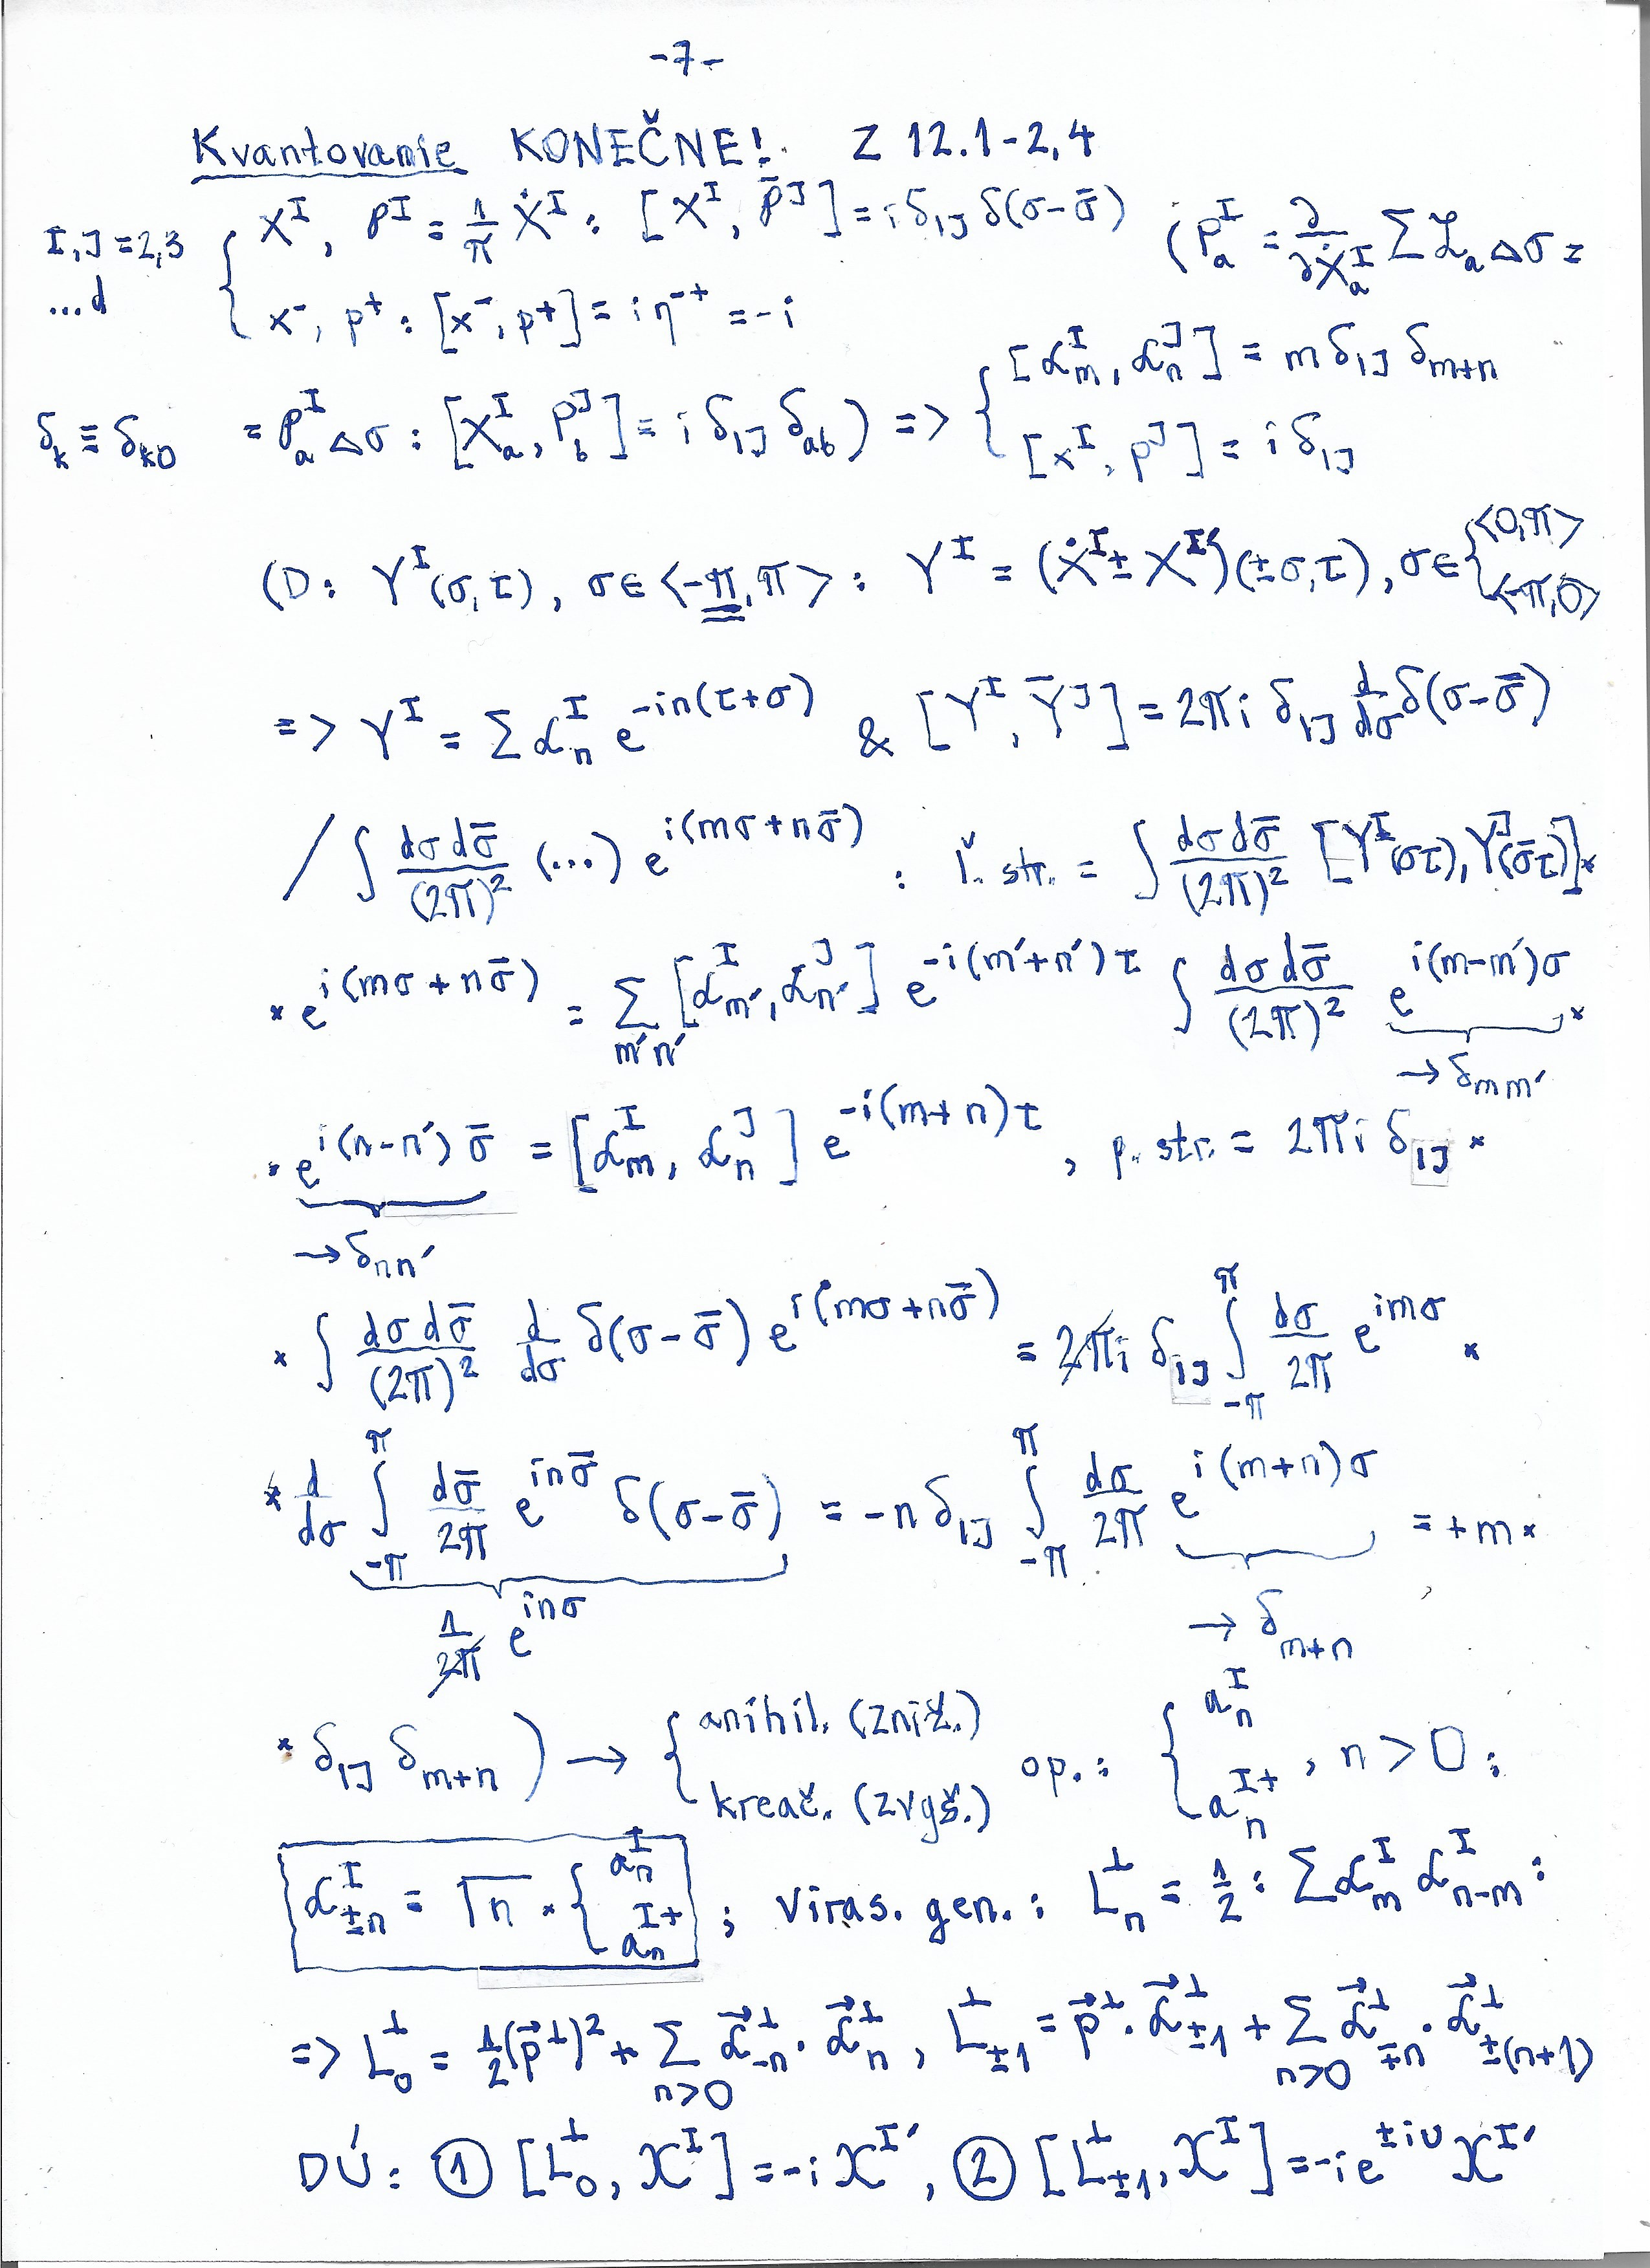 -7-
Kvantovanie KONEČNE! Z 12.1-2,4
I,J=2,3 ...d { X^I, P^I = 1/π Ẋ^I : [X^I, P̄^J] = i δ_IJ δ(σ-σ̄) (P_a^I = ∂/∂Ẋ_a^I Σ ℒ_a Δσ =
x^-, p^+ : [x^-, p^+] = i η^{-+} = -i
δ_k ≡ δ_k0 = P_a^I Δσ : [X_a^I, P_b^J] = i δ_IJ δ_ab) => { [α_m^I, α_n^J] = m δ_IJ δ_{m+n}
[x^I, p^J] = i δ_IJ
(D: Y^I(σ,τ), σ∈<-π,π> : Y^I = (Ẋ^I ± X^I′)(±σ,τ), σ∈{ <0,π> <-π,0>
=> Y^I = Σ α_n^I e^{-in(τ+σ)} & [Y^I, Ȳ^J] = 2πi δ_IJ d/dσ δ(σ-σ̄)
/ ∫ dσdσ̄/(2π)² (...) e^{i(mσ+nσ̄)} : ľ. str. = ∫ dσdσ̄/(2π)² [Y^I(στ), Y^J(σ̄τ)]×
× e^{i(mσ+nσ̄)} = Σ_{m′n′} [α_m′^I, α_n′^J] e^{-i(m′+n′)τ} ∫ dσdσ̄/(2π)² e^{i(m-m′)σ} ×
→ δ_mm′
× e^{i(n-n′)σ̄} = [α_m^I, α_n^J] e^{-i(m+n)τ}, p. str. = 2πi δ_IJ ×
→ δ_nn′
× ∫ dσdσ̄/(2π)² d/dσ δ(σ-σ̄) e^{i(mσ+nσ̄)} = 2πi δ_IJ ∫_{-π}^{π} dσ/2π e^{imσ} ×
× d/dσ ∫_{-π}^{π} dσ̄/2π e^{inσ̄} δ(σ-σ̄) = -n δ_IJ ∫_{-π}^{π} dσ/2π e^{i(m+n)σ} = +m ×
1/2π e^{inσ} → δ_{m+n}
× δ_IJ δ_{m+n}) → { anihil. (zniž.) kreač. (zvyš.) op.: { a_n^I a_n^{I+}, n>0:
α_{±n}^I = √n · { a_n^I a_n^{I+} ; Viras. gen.: L_n^⊥ = 1/2 : Σ α_m^I α_{n-m}^I :
=> L_0^⊥ = 1/2 (p⃗^⊥)² + Σ_{n>0} α⃗_{-n}^⊥ · α⃗_n^⊥, L_{±1}^⊥ = p⃗^⊥ · α⃗_{±1}^⊥ + Σ_{n>0} α⃗_{∓n}^⊥ · α⃗_{±(n+1)}^⊥
DÚ: ① [L_0^⊥, X^I] = -i X^I′, ② [L_{±1}^⊥, X^I] = -i e^{±iυ} X^I′